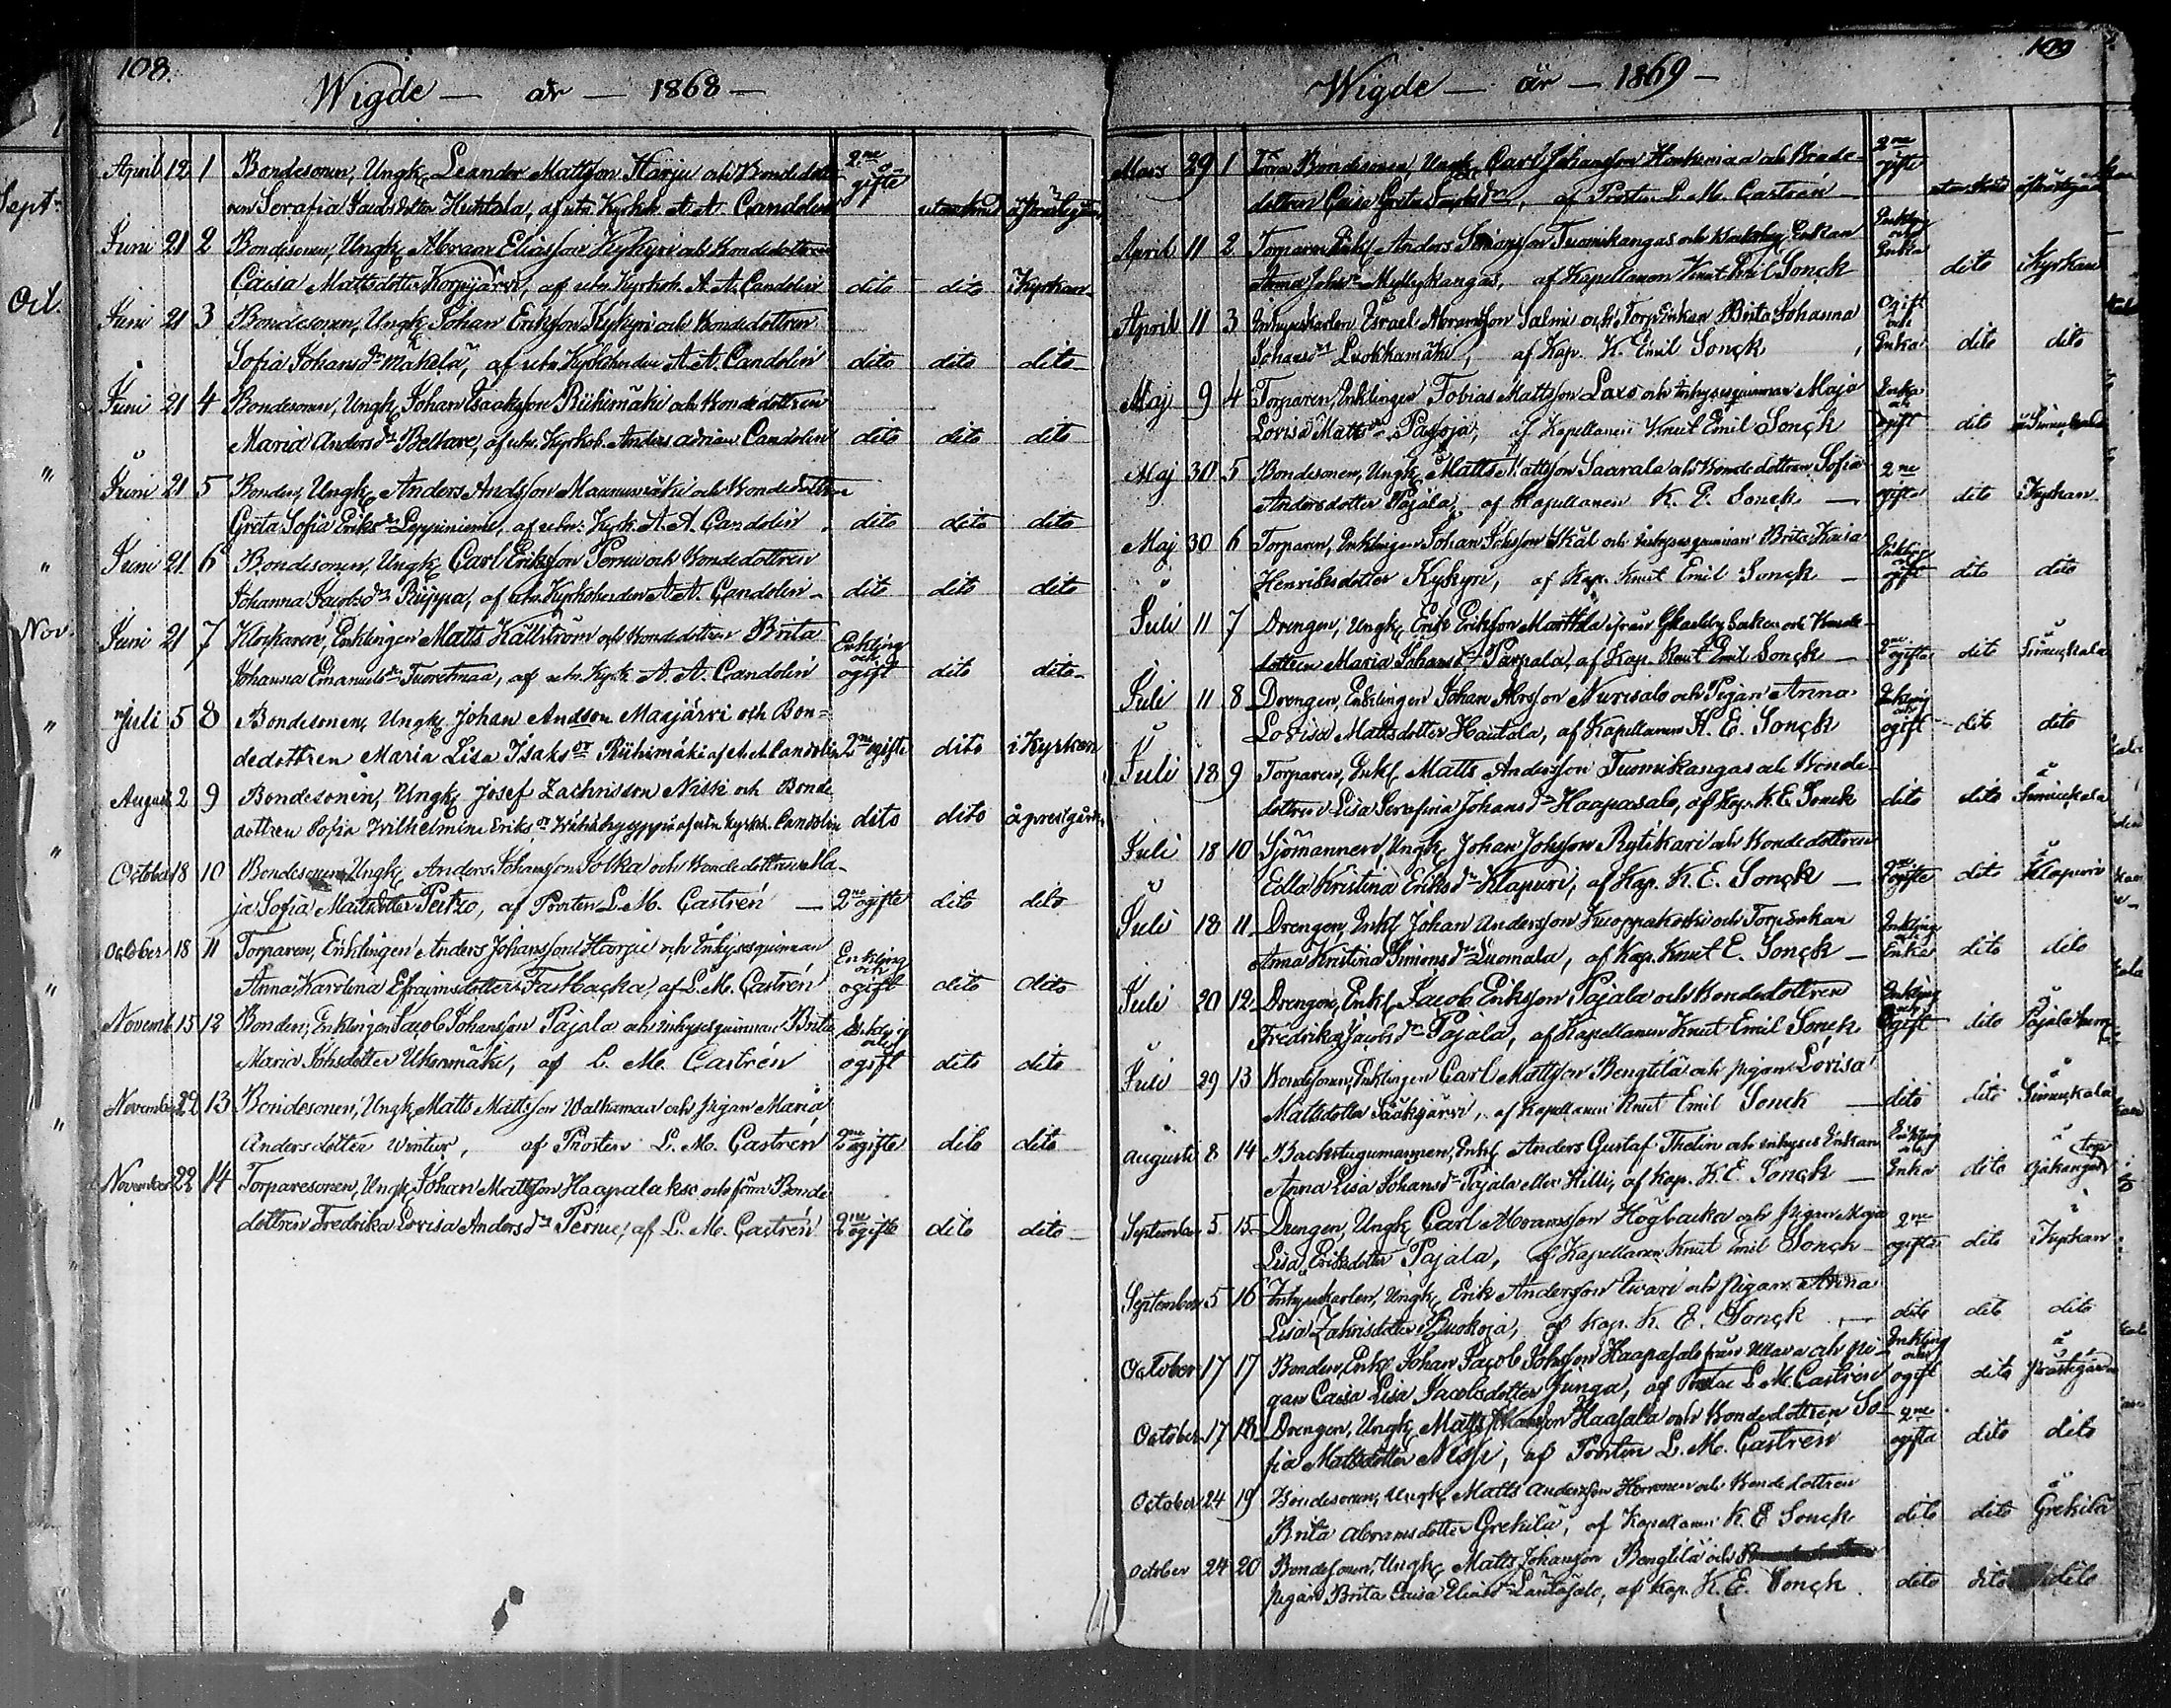 108.
Wigde — år — 1868 —
April 12 1 Bondesonen, Ungk Leander Mattsson Harju och Bondedott- 2ne ogifte
ren Serafia Jacobsdotter Huhtala, af utn. Kyrkoh. A. A. Candolin
Juni 21 2 Bondesonen, Ungk Abram Eliasson Kykyri och Bondedottren
Caisa Mattsdotter Korpijärvi, af utn. Kyrkoh. A. A. Candolin dito dito i Kyrkan
Juni 21 3 Bondesonen, Ungk Johan Eriksson Kykyri och Bondedottren
Sofia Johansdr Makela, af utn. Kyrkoherden A. A. Candolin dito dito dito
Juni 21 4 Bondesonen, Ungk Johan Isaksson Riihimäki och Bondedottren
Maria Andersdr, af utn. Kyrkoh. Anders Adrian Candolin dito dito dito
Juni 21 5 Bonden, Ungk Anders Andsson och Bondedottren
Greta Sofia Eriksdr Leppiniemi, af utn. Kyrk. A. A. Candolin dito dito dito
Juni 21 6 Bondesonen, Ungk Carl Eriksson Pernu och Bondedottren
Johanna Jacobsdr Ruppa, af utn. Kyrkoherden A. A. Candolin dito dito dito
Juni 21 7 Klockaren, Enklingen Matts Källström och Bondedottren Brita Enkling och
Johanna Emanuelsdr Tuoretmaa, af utn. Kyrk. A. A. Candolin ogift dito dito
Juli 5 8 Bondesonen, Ungk Johan Andson Marjärvi och Bon=
dedottren Maria Lisa Isaksdr Riihimäki af A. A. Candolin 2ne ogifte dito i Kyrkan
August 2 9 Bondesonen, Ungk Josef Zachrisson Niski och Bonde
dottren Sofia Wilhelmina Eriksdr af utn Kyrkoh. Candolin dito dito å prestgård.
October 18 10 Bondesonen, Ungk Anders Johansson Jolka och Bondedottren Ma-
ja Sofia Mattsdotter Perkio, af Prosten L. M. Castrén — 2ne ogifte dito dito
October 18 11 Torparen, Enklingen Anders Johansson Harju och Inhysesquinnan Enkling och
Anna Karolina Efraimsdotter Fastbacka, af L. M. Castrén ogift dito dito
Novemb. 15 12 Bonden, Enklingen Jacob Johansson Pajala och inhysesquinnan Brita Enkling och
Maria Johsdotter Ukurimäki, af L. M. Castrén ogift dito dito
November 22 13 Bondesonen, Ungk Matts Mattsson Walkamaa och pigan Maria
Andersdotter Winter, af Prosten L. M. Castrén 2ne ogifte dito dito
November 22 14 Torparesonen, Ungk Johan Mattsson Haapalakso och förra Bonde
dottren Fredrika Lovisa Andersdr Pernu, af L. M. Castrén 2ne ogifte dito dito
Sept.
Oct.
Nov.
109
Wigde — år — 1869 —
Mars 29 1 Förra Bondesonen, Ungk Carl Johansson och Bonde- 2ne ogifte
dottren Caisa Greta, af Prosten L. M. Castrén
April 11 2 Torparen Enkl Anders Simonsson Tuomikangas och Enkan Enkling och Enka
Anna Johsdr Myllykangas, af Kapellanen Knut Emil Sonck dito i Kyrkan
April 11 3 Inhyseskarlen Israel Abramsson Salmi och Torp Enkan Brita Johanna Ogift och
Johansdr Luokkamäki, af Kap. K. Emil Sonck Enka dito dito
Maj 9 4 Torparen, Enklingen Tobias Mattsson Laxo och inhysesquinnan Maja
Lovisa Mattsdr Pajoja, af Kapellanen Knut Emil Sonck ogift dito å Simuckala
Maj 30 5 Bondesonen, Ungk Matts Mattsson Saarala och Bondedottren Sofia 2ne
Andersdotter Pajala, af Kapellanen K. E. Sonck — ogifte dito i Kyrkan
Maj 30 6 Torparen, Enklingen Johan Johsson Skäl och Inhysesquinnan Brita Kaisa Enkling och
Henriksdotter Kykyri, af Kap. Knut Emil Sonck — ogift dito dito
Juli 11 7 Drengen, Ungk Erik Eriksson Marttala ifrån och Bonde-
dottren Maria Johansdr Parpala, af Kap. Knut Emil Sonck — 2ne ogifta dito Simuckala
Juli 11 8 Drengen, Enklingen Johan Abrsson Nurisalo och Pigan Anna Enkling och
Lovisa Mattsdotter Hautala, af Kapellanen K. E. Sonck ogift dito dito
Juli 18 9 Torparen, Enkl Matts Andersson Tuomikangas och Bonde-
dottren Lisa Serafina Johansdr Haapasalo, af Kap. K. E. Sonck dito dito å Simuckala
Juli 18 10 Sjömannen, Ungk Johan Johsson Rytikari och Bondedottren
Edla Kristina Eriksdr Klapuri, af Kap. K. E. Sonck — 2ne ogifte dito å Klapuri
Juli 18 11 Drengen, Enkl Johan Andersson Kuoppakoski och Torp Enkan Enkling och
Anna Kristina Simonsdr Luomala, af Kap. Knut E. Sonck — Enka dito dito
Juli 20 12 Drengen, Enkl Jacob Eriksson Pajala och Bondedottren Enkling och
Fredrika Jacobsdr Pajala, af Kapellanen Knut Emil Sonck Ogift dito å Pajala
Juli 29 13 Bondesonen, Enklingen Carl Mattsson Bengtilä och pigan Lovisa
Mattsdotter Sääkjärvi, af Kapellanen Knut Emil Sonck — dito dito å Simuckala
Augusti 8 14 Backstugumannen, Enkl Anders Gustaf Thelin och inhyses Enkan Enkling och å torp
Anna Lisa Johansdr Pajala eller Hilli, af Kap. K. E. Sonck — Enka dito
September 5 15 Drengen, Ungk Carl Abramsson Högbacka och pigan Maja 2ne i
Lisa Eriksdotter Pajala, af Kapellanen Knut Emil Sonck — ogifta dito Kyrkan
September 5 16 Inhyseskarlen, Ungk Erik Andersson Iwari och pigan Anna
Lisa Zakrisdotter Ruokoja, af Kap. K. E. Sonck — dito dito dito
October 17 17 Bonden, Enkl Johan Jacob Johsson Haapasalo från och pi- Enkling och å
gan Caisa Lisa Jacobsdotter Junga, af Prosten L. M. Castrén ogift dito prästgården
October 17 18 Drengen, Ungk Matts Johansson Haapala och Bondedottren So- 2ne
fia Mattsdotter Nissi, af Prosten L. M. Castrén ogifta dito dito
October 24 19 Bondesonen, Ungk Matts Andersson Horronen och Bondedottren å
Brita Abramsdotter Grekilä, af Kapellanen K. E. Sonck dito dito Grekilä
October 24 20 Bondesonen, Ungk Matts Johansson Bengtilä och
pigan Brita Caisa Eliasdr Lautasalo, af Kap. K. E. Sonck. dito dito dito